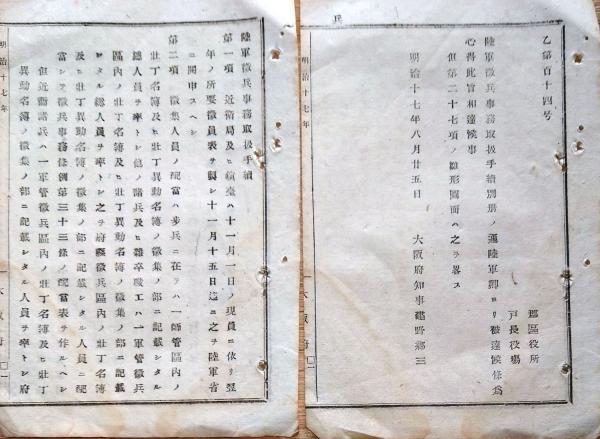 兵
乙第百十四号
郡區役所
戸長役場
陸軍徴兵事務取扱手續別册ノ通陸軍卿ヨリ被達候條爲
心得此旨相達候事
但第二十七項ノ雛形圖面ハ之ヲ畧ス
明治十七年八月廿五日
大阪府知事建野郷三
明治十七年
陸軍徴兵事務取扱手續
第一項 近衛局及ヒ鎭臺ハ十一月一日ノ現員ニ依リ翌
年ノ所要徴員表ヲ製シ十一月十五日迄ニ之ヲ陸軍省
ニ開申スヘシ
第二項 徴集人員ノ配當ハ歩兵ニ在テハ一師管區内ノ
壮丁名簿及ヒ壮丁異動名簿ノ徴集ノ部ニ記載シタル
總人員ヲ率トシ他ノ諸兵及ヒ雜卒職工ハ一軍管徴兵
區内ノ壮丁名簿及ヒ壮丁異動名簿ノ徴集ノ部ニ記載
シタル總人員ヲ率トシ之ヲ府縣徴兵區内ノ壮丁名簿
及ヒ壮丁異動名簿ノ徴集ノ部ニ記載シタル人員ニ配
當シテ徴兵事務條例第三十三條ノ配當表ヲ作ルヘシ
但近衛諸兵ハ一軍管徴兵區内ノ壮丁名簿及ヒ壮丁
異動名簿ノ徴集ノ部ニ記載シタル人員ヲ率トシ府
明治十七年
大阪府